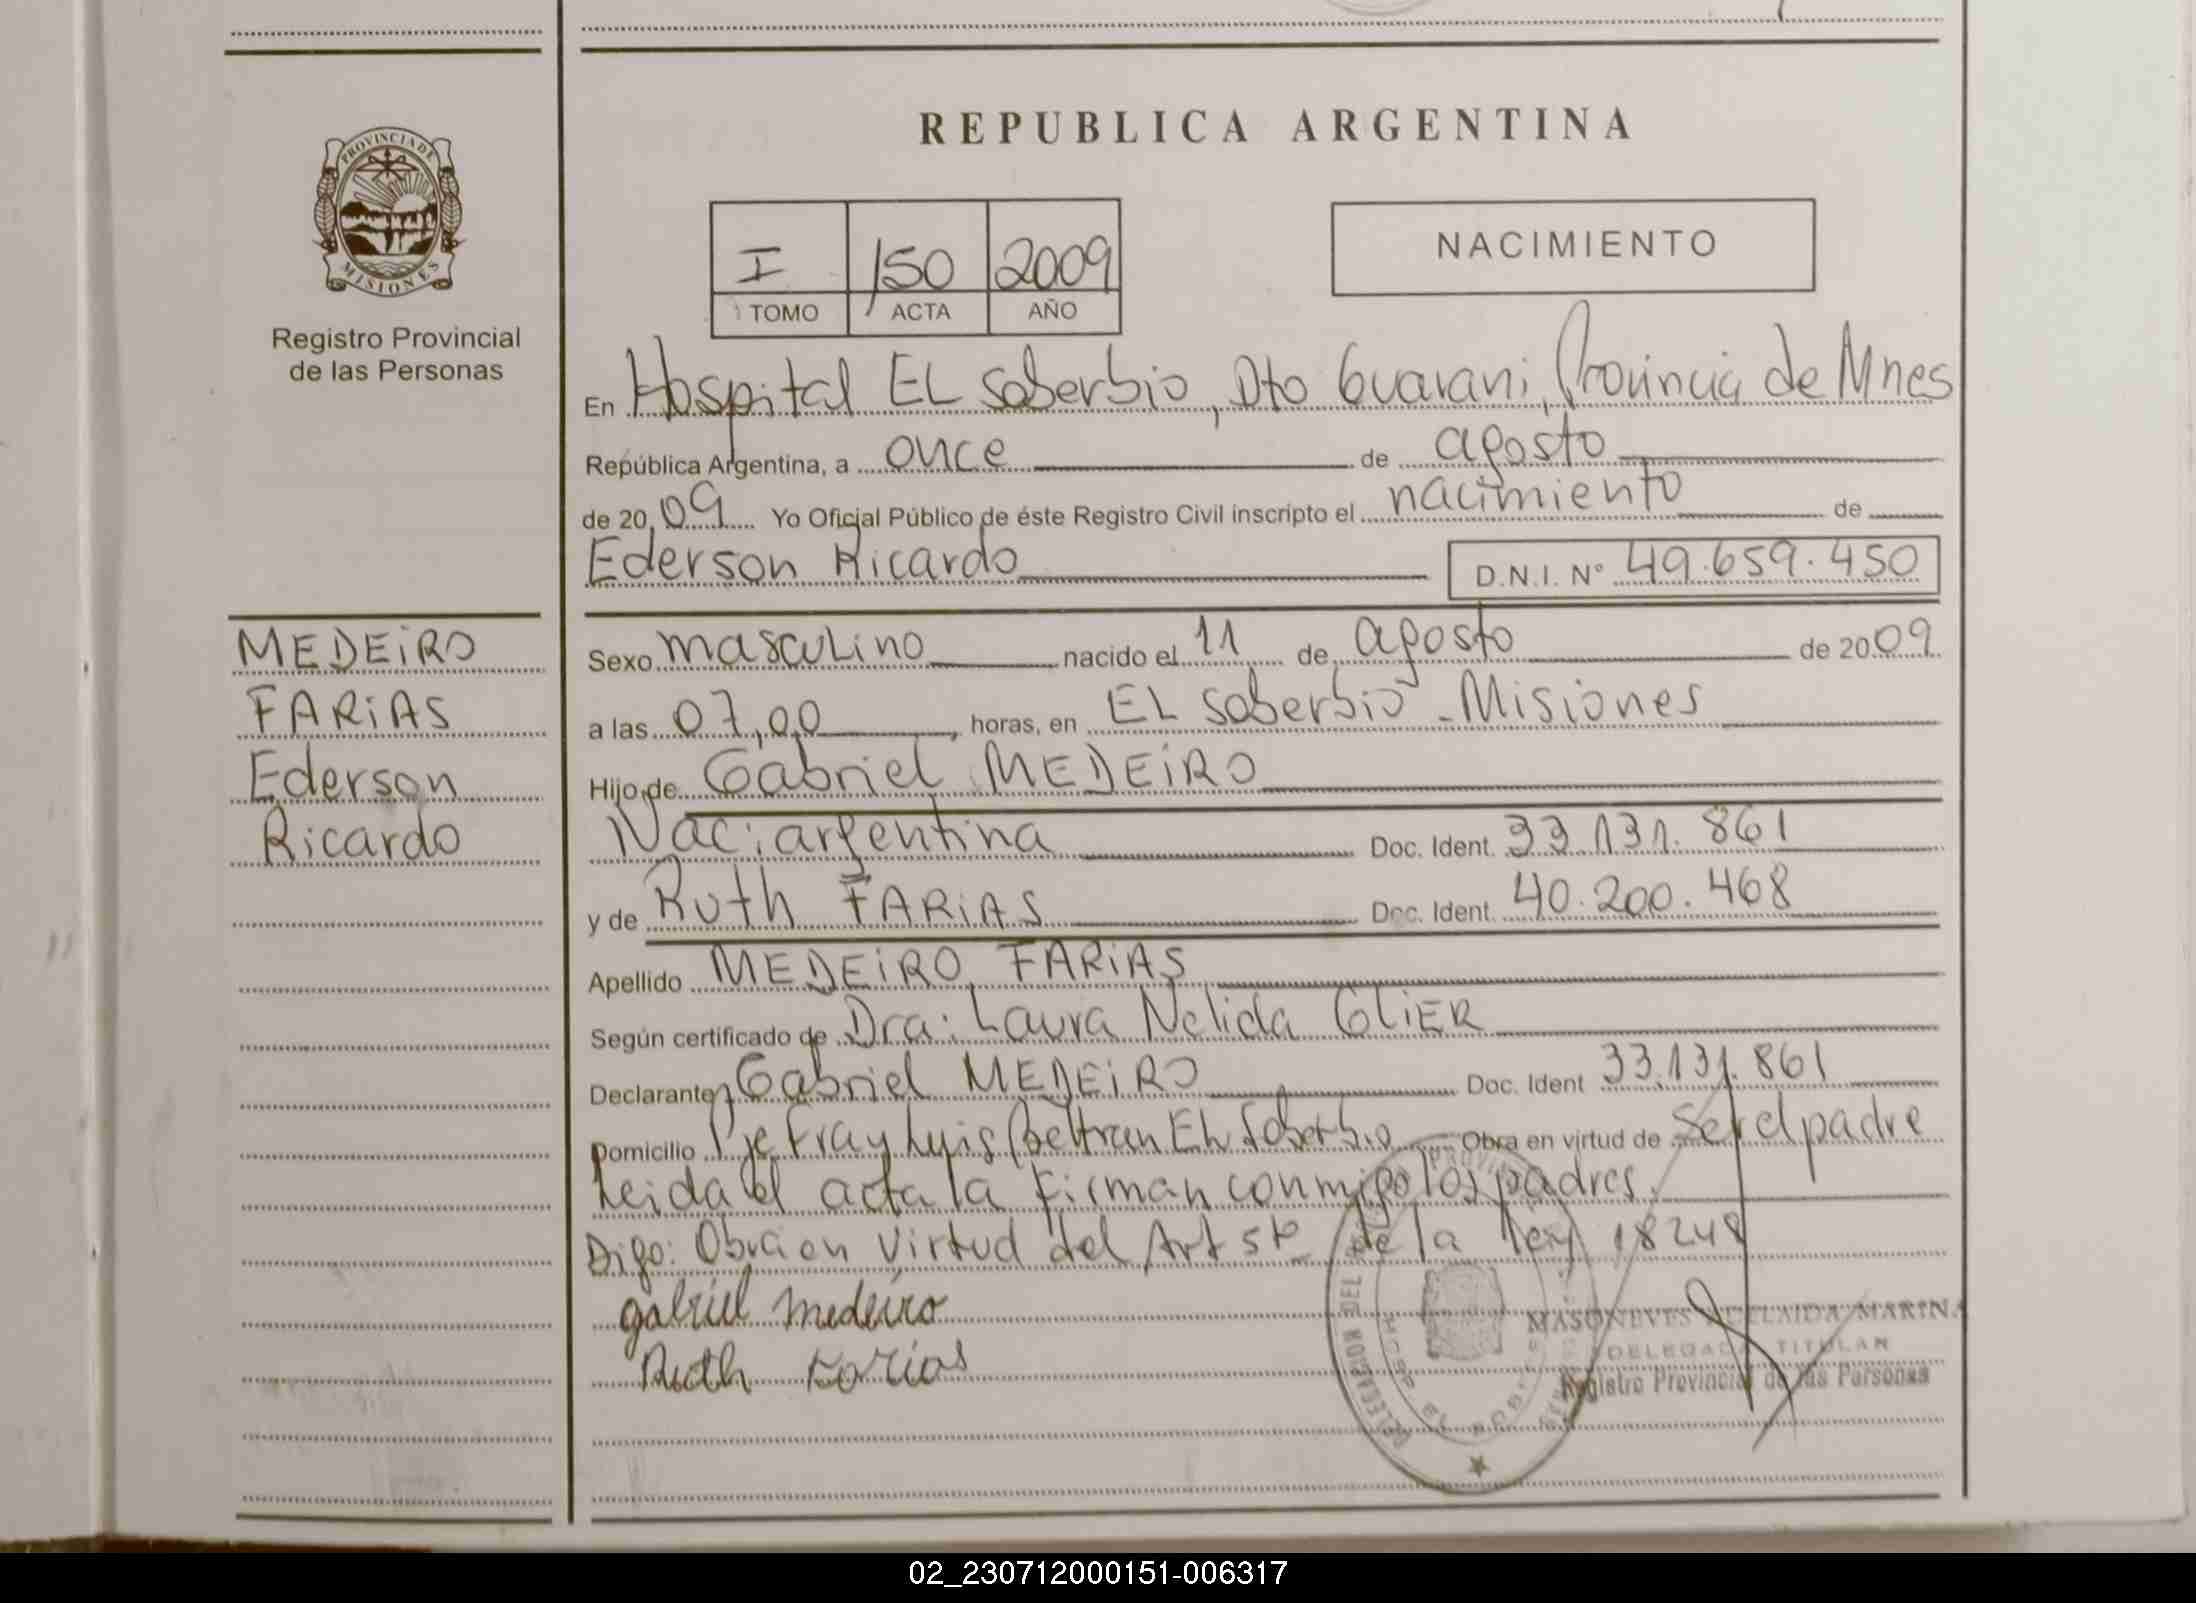 REPUBLICA ARGENTINA
PROVINCIA DE
MISIONES
Registro Provincial
de las Personas
I 150 2009
TOMO ACTA AÑO
NACIMIENTO
En Hospital EL Soberbio, Dto Guarani, Provincia de Mnes
República Argentina, a once de agosto
de 2009 Yo Oficial Público de éste Registro Civil inscripto el nacimiento de
Ederson Ricardo D.N.I. Nº 49.659.450
MEDEiRO
FARiAS
Ederson
Ricardo
Sexo masculino nacido el 11 de agosto de 2009
a las 07,00, horas, en EL Soberbio - Misiones
Hijo de Gabriel MEDEiRO
Nac: argentina Doc. Ident. 33.131.861
y de Ruth FARiAS Doc. Ident. 40.200.468
Apellido MEDEiRO FARiAS
Según certificado de Dra: Laura Nelida GLiER
Declarante Gabriel MEDEiRO Doc. Ident 33.131.861
Domicilio Pje Fray Luis Beltran EL Soberbio Obra en virtud de ser el padre
Leida el acta la Firman conmigo los padres
Digo: Obra en virtud del Art 5to de la Ley 18248
gabriel medeiro
Ruth Farias
DELEGACION DEL
MASONEVES ADELAIDA MARINA
DELEGADA TITULAR
Registro Provincial de las Personas
02_230712000151-006317